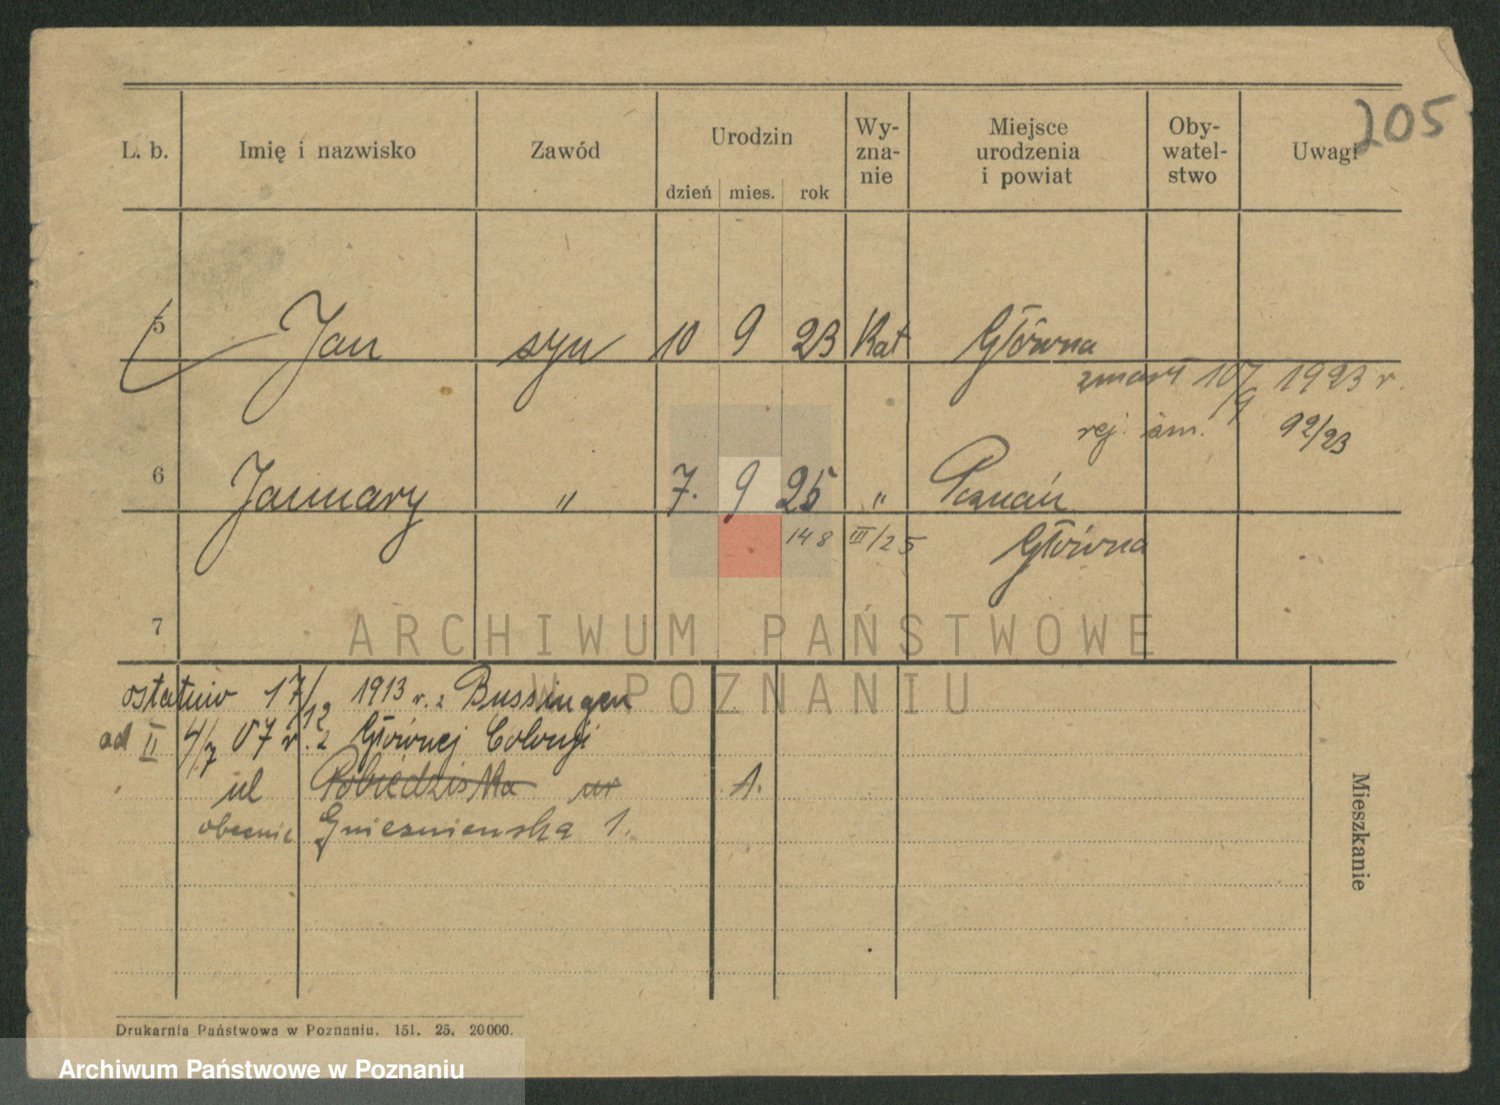 205
L. b. Imię i nazwisko Zawód Urodzin Wy-zna-nie Miejsce urodzenia i powiat Oby-watel-stwo Uwagi
dzień mies. rok
5 Jan syn 10 9 23 Kat Główna
zmarł 10/9 1923 r.
rej. 92/23
6 January " 7. 9 25 " Poznań
148 III/25 Główna
7
ARCHIWUM PAŃSTWOWE
W POZNANIU
ostatnio 17/12 1913 r. z Bussingen
od II 4/7 07 r. z Głównej
ul Pobiedziska nr 1.
obecnie Gnieznienska 1.
Mieszkanie
Drukarnia Państwowa w Poznaniu. 151. 25. 20000.
Archiwum Państwowe w Poznaniu